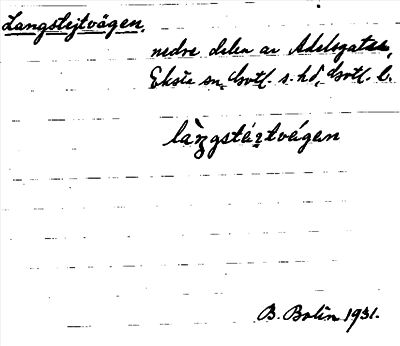 Langstejtvägen.
nedre delen av Adelsgatan,
Eksta sn, Gotl. s. hd, Gotl. l.
làŋgstáitvágen
B. Bolin 1931.